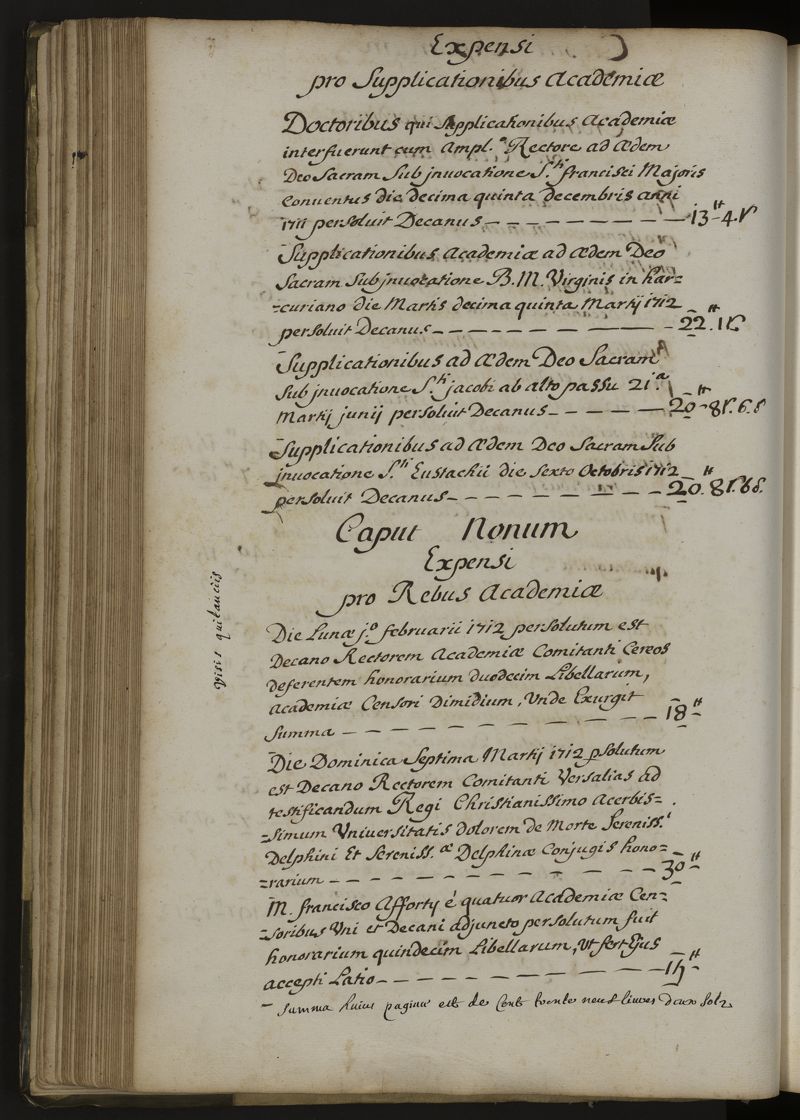 Expensi
pro Supplicationibus Academiæ
Doctoribus qui Supplicationibus Academiæ
interfuerunt cum Ampl.º Rectore ad Ædem
Deo Sacram Sub jnuocatione S.ti francisci Majoris
Conuentus die decima quinta decembris anni
1711 persoluit Decanus – – – – – – – – 13tt 4.s
Supplicationibus Academiæ ad Ædem Deo
Sacram Sub jnuocatione B. M. Virginis in har=
=curiano die Martis decima quinta Martij 1712
persoluit Decanus – – – – – – – – 22tt.1s
Supplicationibus ad Ædem Deo Sacram
Sub jnuocatione S.ti jacobi ab alto passu 21.a
Martij junij persoluit Decanus – – – – – 20tt 8s.6.d
Supplicationibus ad Ædem Deo Sacram Sub
jnuocatione S.ti Eustachii die sexto Octobris 1712
persoluit Decanus – – – – – – – – 20tt.8s.6d.
Caput Nonum
Expensi
pro Rebus Academiæ
visis quitanciis
Die Lunæ j.º februarii 1712 persolutum est
Decano Rectorem Academiæ Comitanti Cereos
deferentem honorarium duodecim Libellarum,
Academiæ Censori Dimidium, Unde Exurgit
Summa – – – – – – – – 18tt
Die Dominica Septima Martij 1712 psolutum
est Decano Rectorem Comitanti Versalias ad
testificandum Regi Christianissimo Acerbis=
=simum Vniuersitatis dolorem de Morte Sereniss.i
Delphini Et Sereniss.æ Delphinæ Conjugis hono=
=rarium – – – – – – – – 30tt
M. francisco Afforty é quatuor Academiæ Cen=
=soribus Vni et Decani adjuncto persolutum fuit
honorarium quindecim Libellarum, Vt fert Ejus
accepti Latio – – – – – – – – 15tt
Summa huius paginæ est de Cent trente neuf liures deux solz